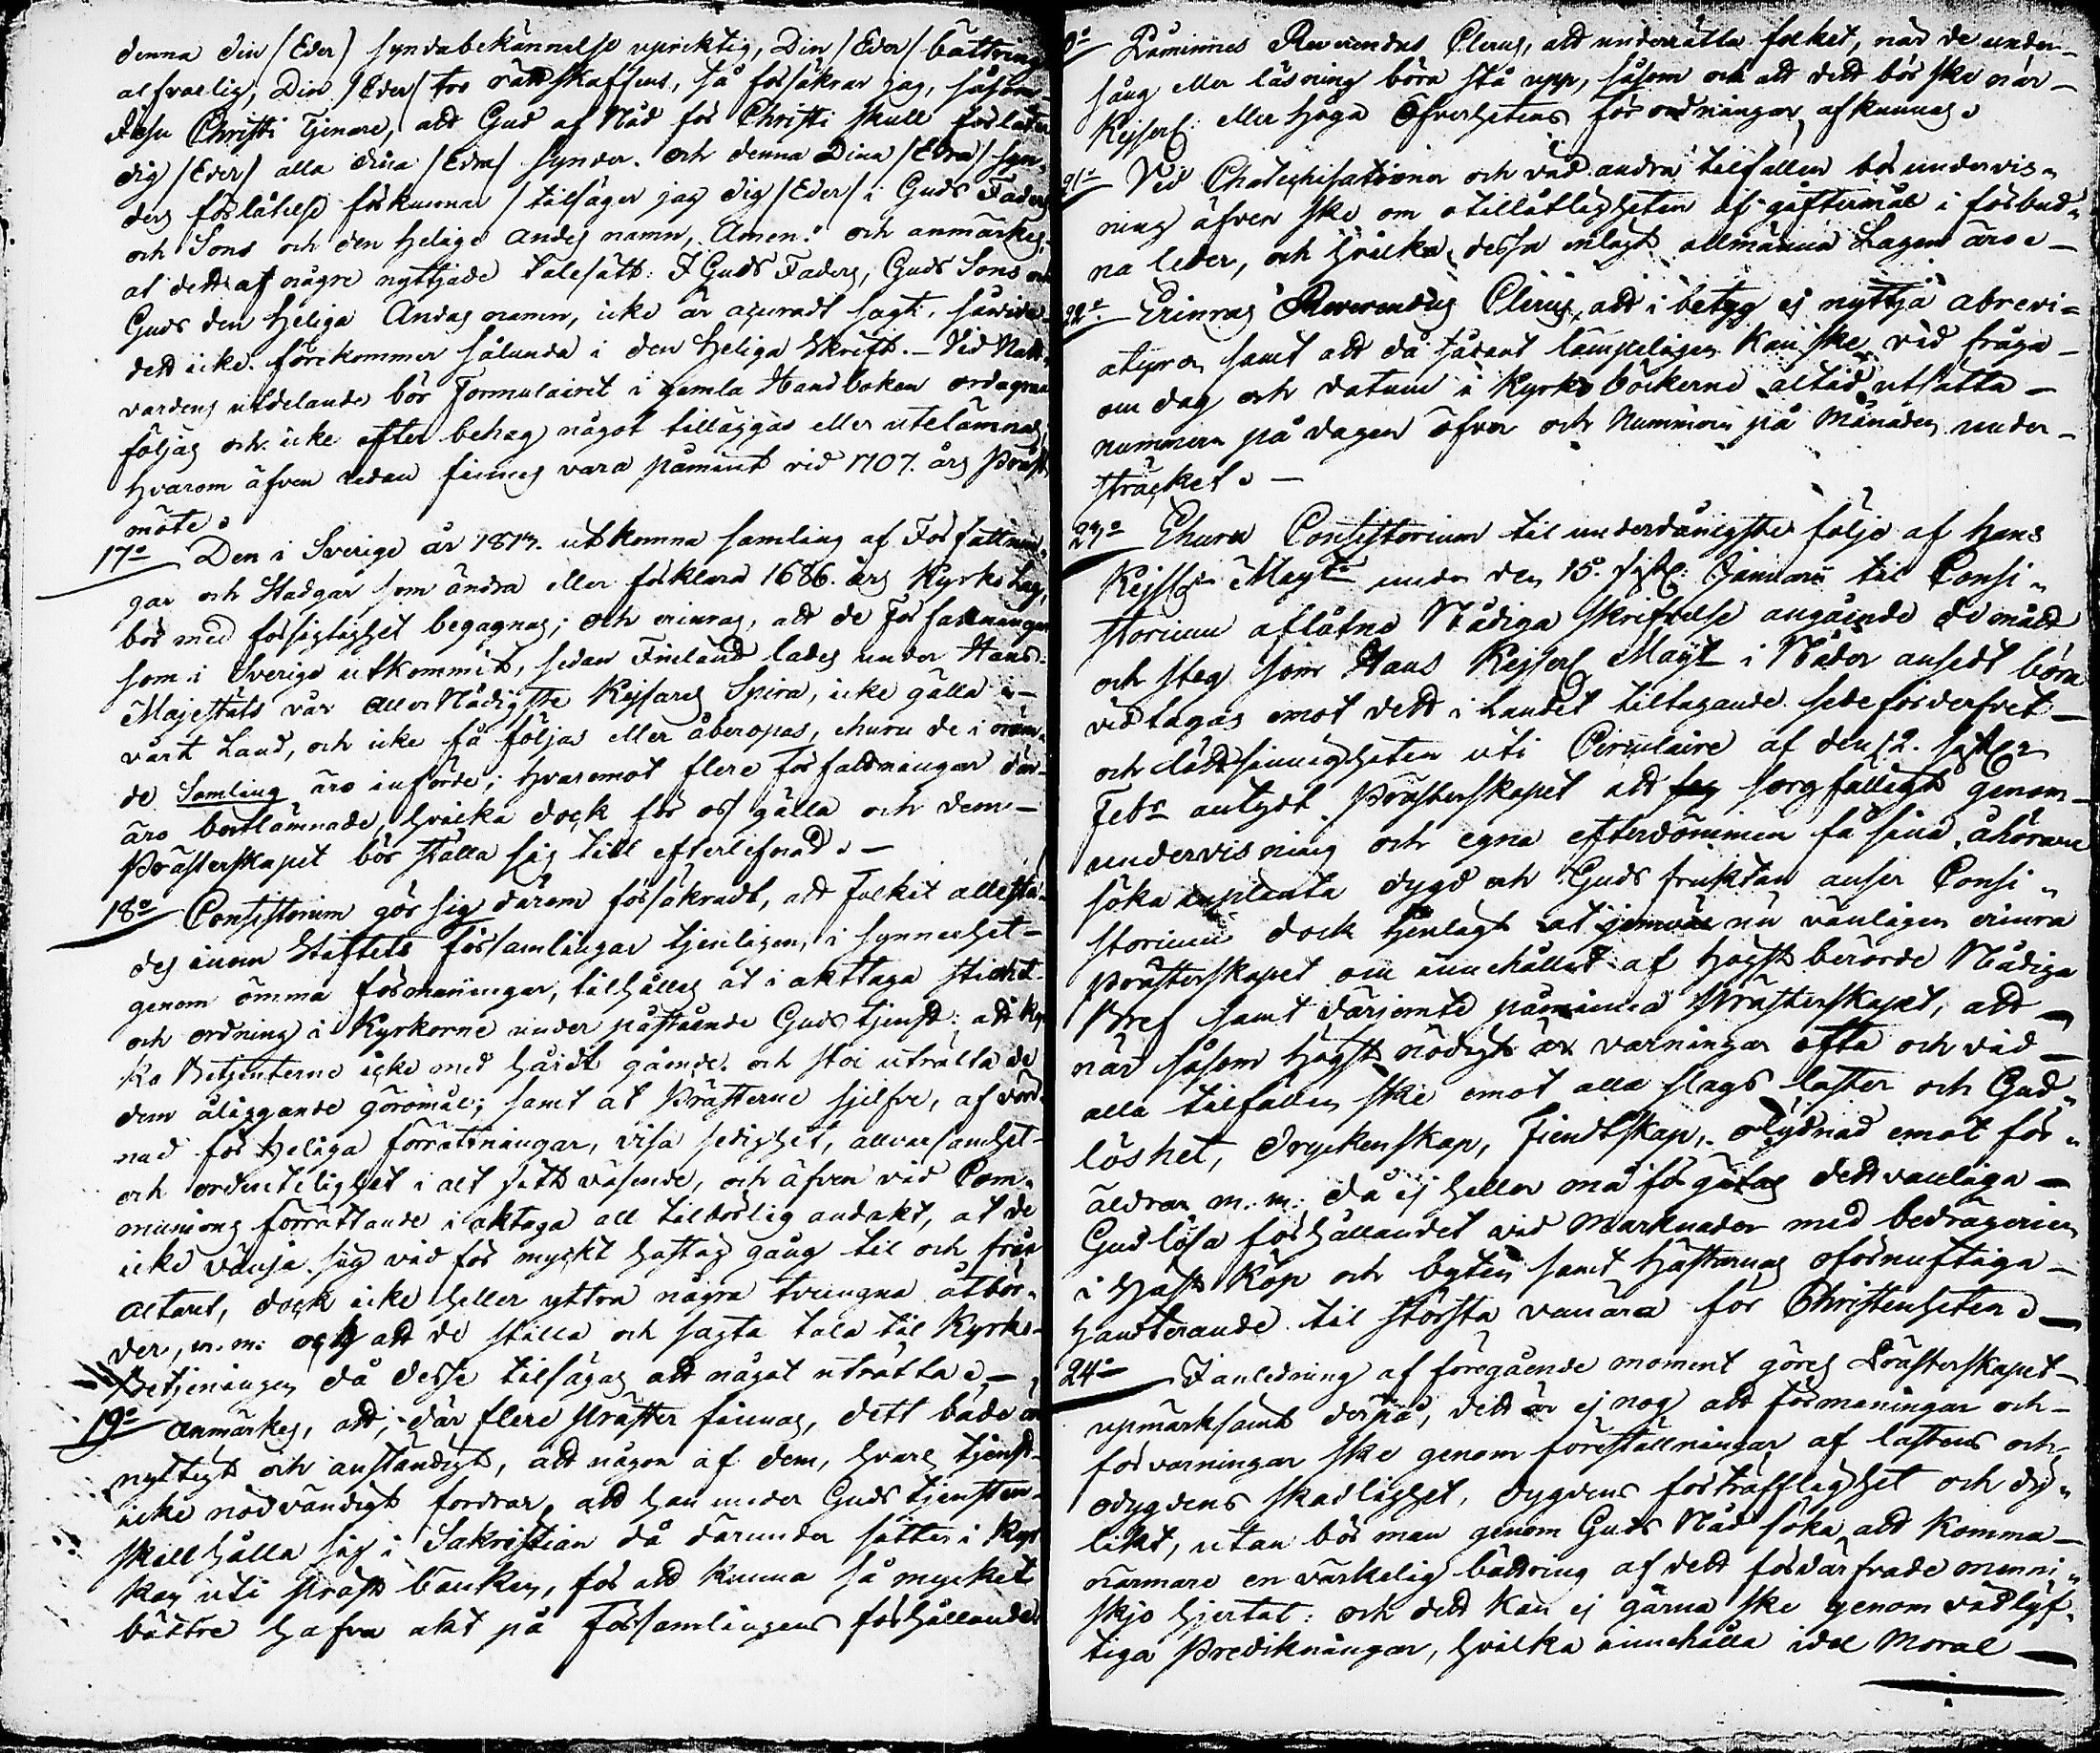 denna din /Eder/ syndabekännelse upriktig, Din /Eder/ bättring
alfvarlig, Din /Eder/ tro rättskaffens, så försäkrar jag, såsom
Jesu Christi Tjenare, att Gud af Nåd för Christi skull förlåter
dig /Eder/ alla dina /Edra/ synder. Och denna Dina /Edra/ syn-
ders förlåtelse förkunnar /tilsäger jag dig /Eder/ i Guds Faders
och Sons och den Helige Andes namn, Amen." och anmärkes,
at dett af någre nyttjade talesätt: I Guds Faders, Guds Sons och
Guds den Heliga Andas namn, icke är acuradt sagt, såvida
dett icke förekommer sålunda i den Heliga Skrift. – Vid Natt-
vardens utdelande bör Formulairet i gamla Handboken ordagrant
följas och icke efter behag något tilläggas eller utelämnas,
hvarom äfven redan finnes vara påmint vid 1707. års Präst
möte.
17º Den i Sverige år 1813. utkomna samling af Författnin-
gar och Stadgar som ändra eller förklara 1686. års Kyrko Lag,
bör med försigtighet begagnas; och erinras, att de Författningar
som i Sverige utkommit, sedan Finland lades under Hans
Majestäts vår Aller Nådigste Kejsares Spira, icke gälla i –
vårt Land, och icke få följas eller åberopas, ehuru de i nämn-
de Samling äro införde; hvaremot flere Författningar där
äro bortlämnade, hvilka dock för oss gälla och dem –
Prästerskapet bör ställa sig till efterlefnad. –
18º Consistorium gör sig därom försäkradt, att folket allestä-
des inom Stiftets församlingar tjenligen, i synnerhet –
genom ömma förmaningar, tilhålles at i akttaga stillhet
och ordning i Kyrkorne under påstående Guds tjenst: att Kyr
ko Betjenterne icke med hårdt gående och stoi uträtta de
dem åliggande göromål; samt at Prästerne sjelfve, af vörd-
nad för Heliga Förrättningar, visa sedighet, allvarsamhet –
och ordentelighet i alt sitt väsende, och äfven vid Com-
munions förrättande i akttaga all tilbörlig andakt, at de
icke vänja sig vid för myckt hastig gång til och från
altaret, dock icke heller yttra några tvungna åtbör-
der, m.m. och att de stilla och sagta tala til Kyrko-
Betjeningen då desse tilsägas att något uträtta. –
19º Anmärkes, att, där flere Präster finnas, dett både är
nyttigt och anständigt, att någon af dem, hvars tjenst
icke nödvändigt fordrar, att han under Guds tjensten
skall hålla sig i Sakristian då därunder sitter i Kyr
kan uti Präst bänken, för att kunna så mycket
bättre hafva akt på Församlingens förhållande.
0º Påminnes Reverendus Clerus, att underrätta folket, när de under –
sång eller läsning böra stå upp, såsom och att dett bör ske när –
Kejserl: eller höga Öfverhetens förordningar afkunnas.
21º Vid Chatechisationer och vid andra tilfällen bör undervis-
ning äfven ske om otillåtligheten af giftermål i förbud-
na leder, och hvilka dessa enligt allmänna Lagen äro. –
22º Erinras Reverendus Clerus, att i betyg ej nyttja abrevi-
aturer samt att då sådant lämpeligen kan ske vid fråga –
om dag och datum i Kyrko böckerne altid utsätta –
nummern på dagen öfver och Nummern på Månaden under –
sträcket. –
23º Ehuru Consistorium til underdånigste följe af Hans
Kejserl: Mayts under den 15. sistl: Januarii til Consi-
storium aflåtne Nådiga Skrifvelse angående de mått
och steg som Hans Kejserl Mayt i Nåder ansedt böra
vidtagas emot dett i Landet tiltagande sedefördervet –
och lättsinnigheten uti Circulaire af den 12. sistl:ne
Febr antydt Prästerskapet att sorgfälligt genom –
undervisning och egna efterdömmen få sina åhörare
söka inplanta dygd och Guds fruktan anser Consi-
storium dock tjenligt at jemväl nu vänligen erinra
Prästerskapet om innehållet af högst berörde Nådiga
Bref samt därjemte påminna Prästerskapet, att –
när såsom högst nödigt är varningar ofta och vid –
alla tilfällen ske emot alla slags laster och Gud-
löshet, Dryckenskap, Fiendtskap, olydnad emot för-
äldrar m.m. då ej heller må förgätas dett vanliga –
Gudlösa förhållandet vid Marknader med bedrägerier
i Häst Köp och byten samt Hästarnas oförnuftiga –
handterande til största vanära för Christenheten. –
24º I anledning af föregående moment göres Prästerskapet –
upmärksamt derpå, dett är ej nog att förmaningar och –
förvarningar ske genom föreställningar af lastens och
odygdens skadlighet, dygdens förträfflighet och dy-
likt, utan bör man genom Guds Nåd söka att komma –
närmare en värkelig bättring af dett fördärfvade menni-
skjo hjertat: och dett kan ej gärna ske genom vidlyf-
tiga Predikningar, hvilka innehålla idel Moral –